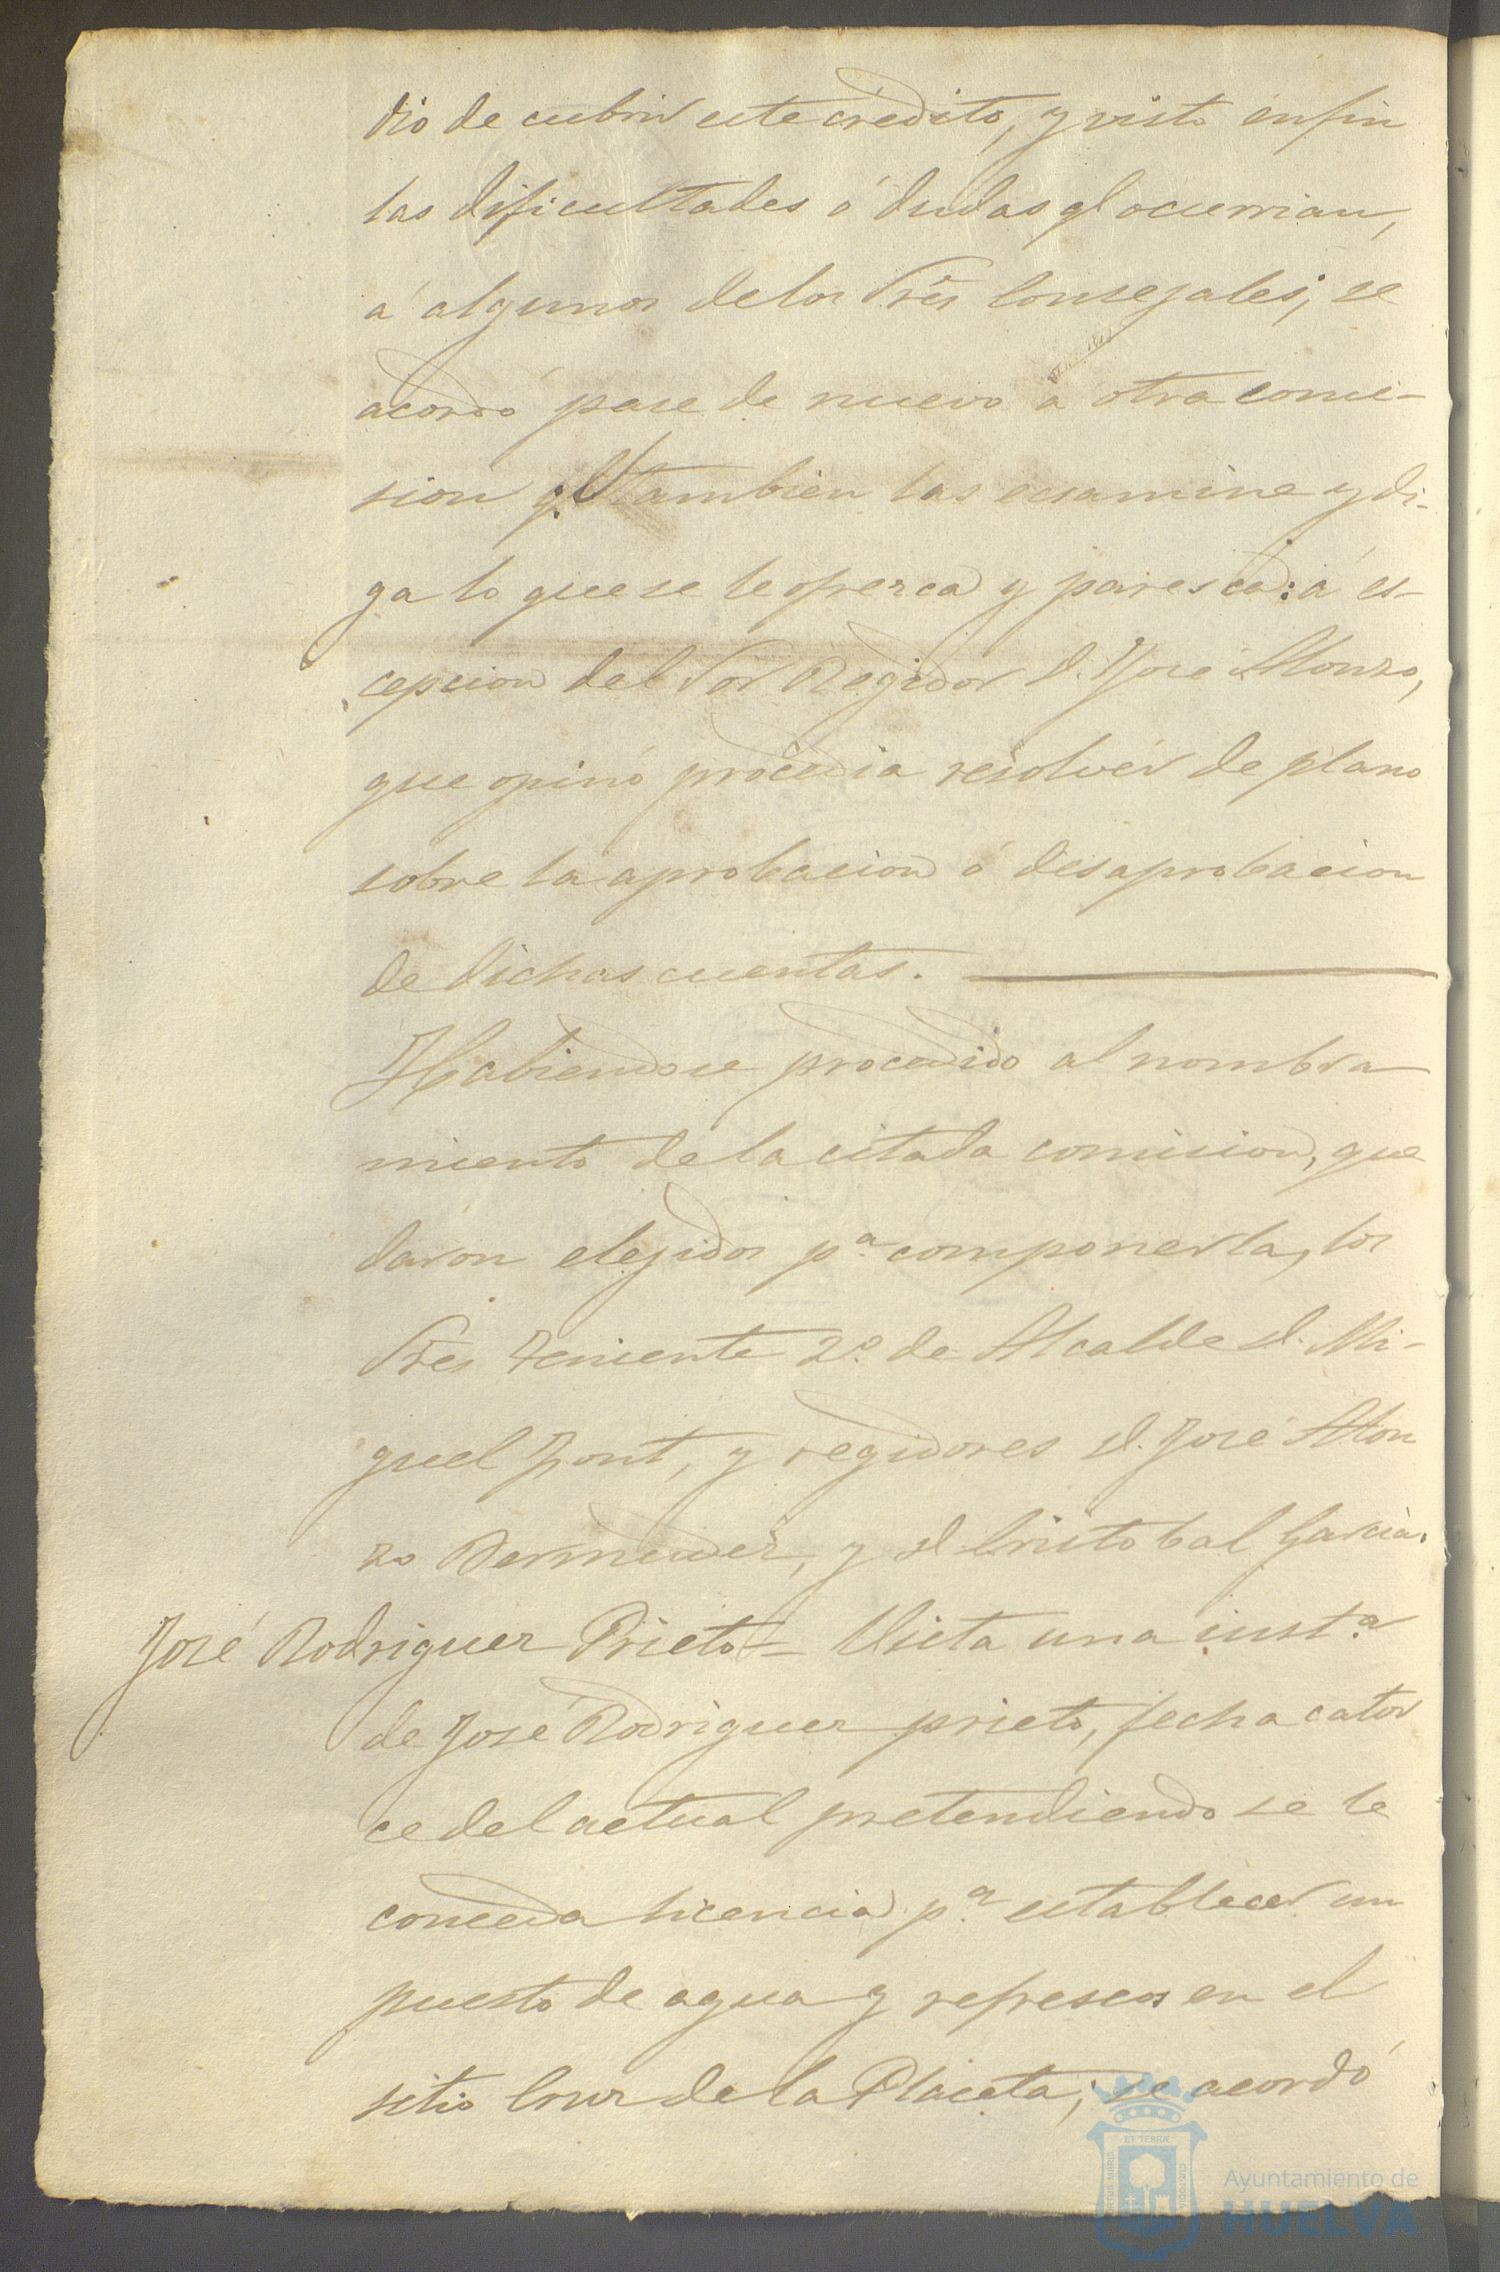 dio de cubrir este crédito, y visto en fin
las dificultades ó dudas q.e ocurrian,
á algunos de los Sres Consejales; se
acordó pase de nuevo á otra comi-
sion q.e tambien las ecsamine y di-
ga lo que se le oferzca y paresca: á es-
cepcion del Sor Regidor D. José Alonzo,
que opinó procedia resolver de plano
sobre la aprobacion ó desaprobacion
de dichas cuentas.
Habiendose procedido al nombra
miento de la citada comision, que
daron elejidos p.a componerla, los
Sres Teniente 2.o de Alcalde D. Mi-
guel Font, y regidores D. José Alon
zo Bermudez, y D. Cristobal Garcia.
José Rodriguez Prieto = Vista una inst.a
de José Rodriguez prieto, fecha cator
ce del actual pretendiendo se le
conceda licencia p.a establecer un
puesto de agua y refrescos en el
sitio Cruz de la Placeta; se acordó
Ayuntamiento de
HUELVA